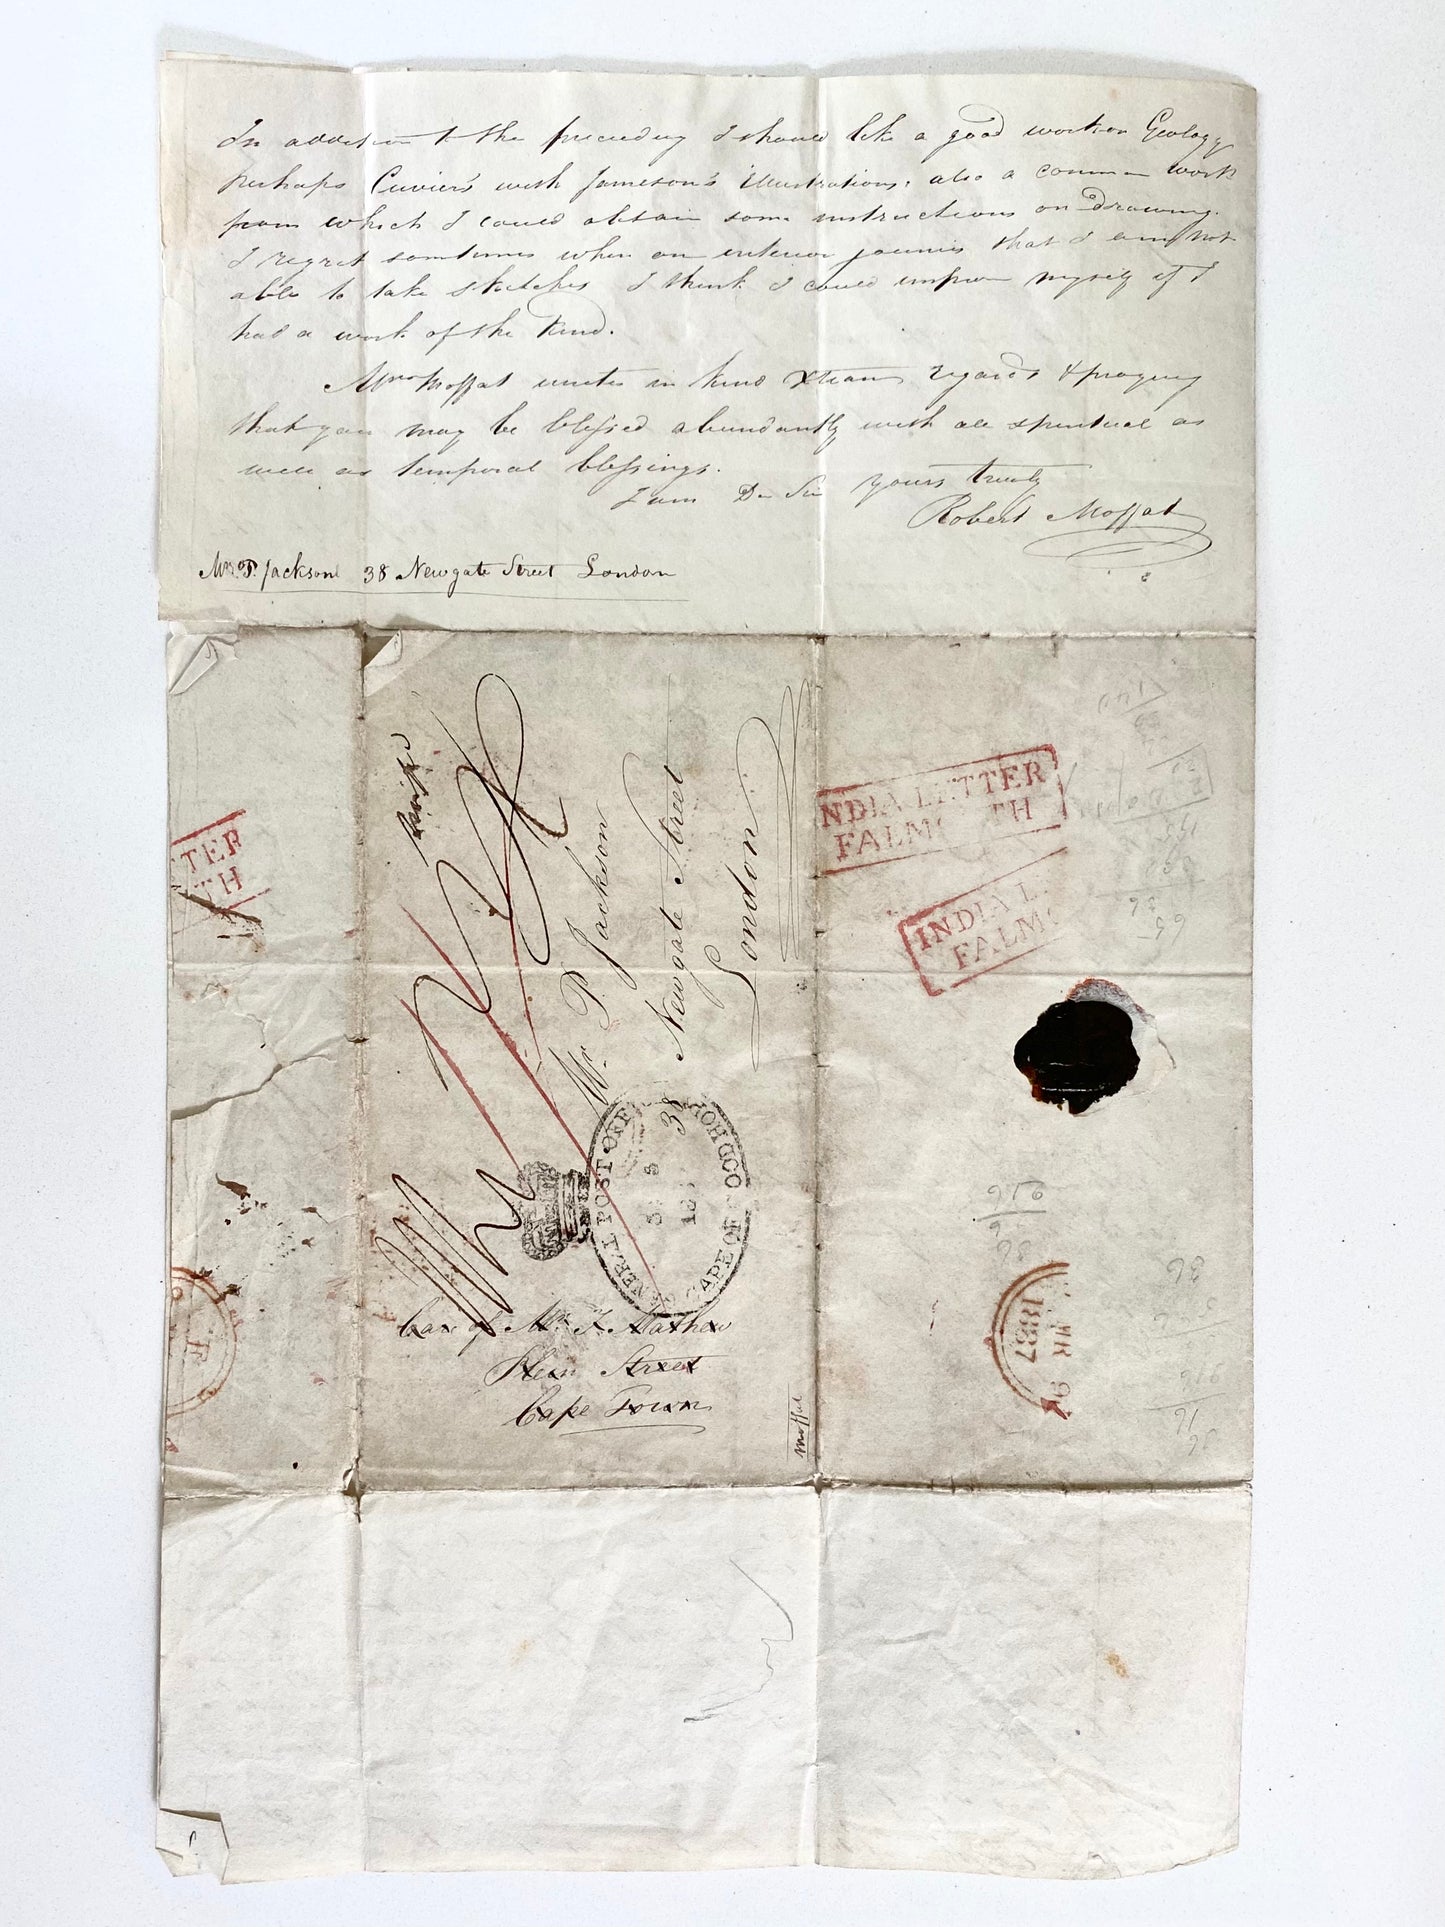 In addition to the preceding I should like a good work on Geology
perhaps Cuvier's with Jameson's illustrations; also a common work
from which I could obtain some instructions on Drawing.
I regret sometimes when on interior journies that I am not
able to take sketches I think I could improve myself if I
had a work of the kind.
Mrs Moffat unites in kind Xtian regards & praying
that you may be blessed abundantly with all spiritual as
well as temporal blessings.
I am Dr Sir yours truly
Robert Moffat
Mr. P. Jackson 38 Newgate Street London
Mr. P. Jackson
38 Newgate Street
London
Care of Mr. J. Mathew
Street
Cape Town
Moffat
INDIA LETTER
FALMOUTH
INDIA L
FALMO
TER
TH
GENERAL POST OFFICE
CAPE OF GOOD HOPE
1837